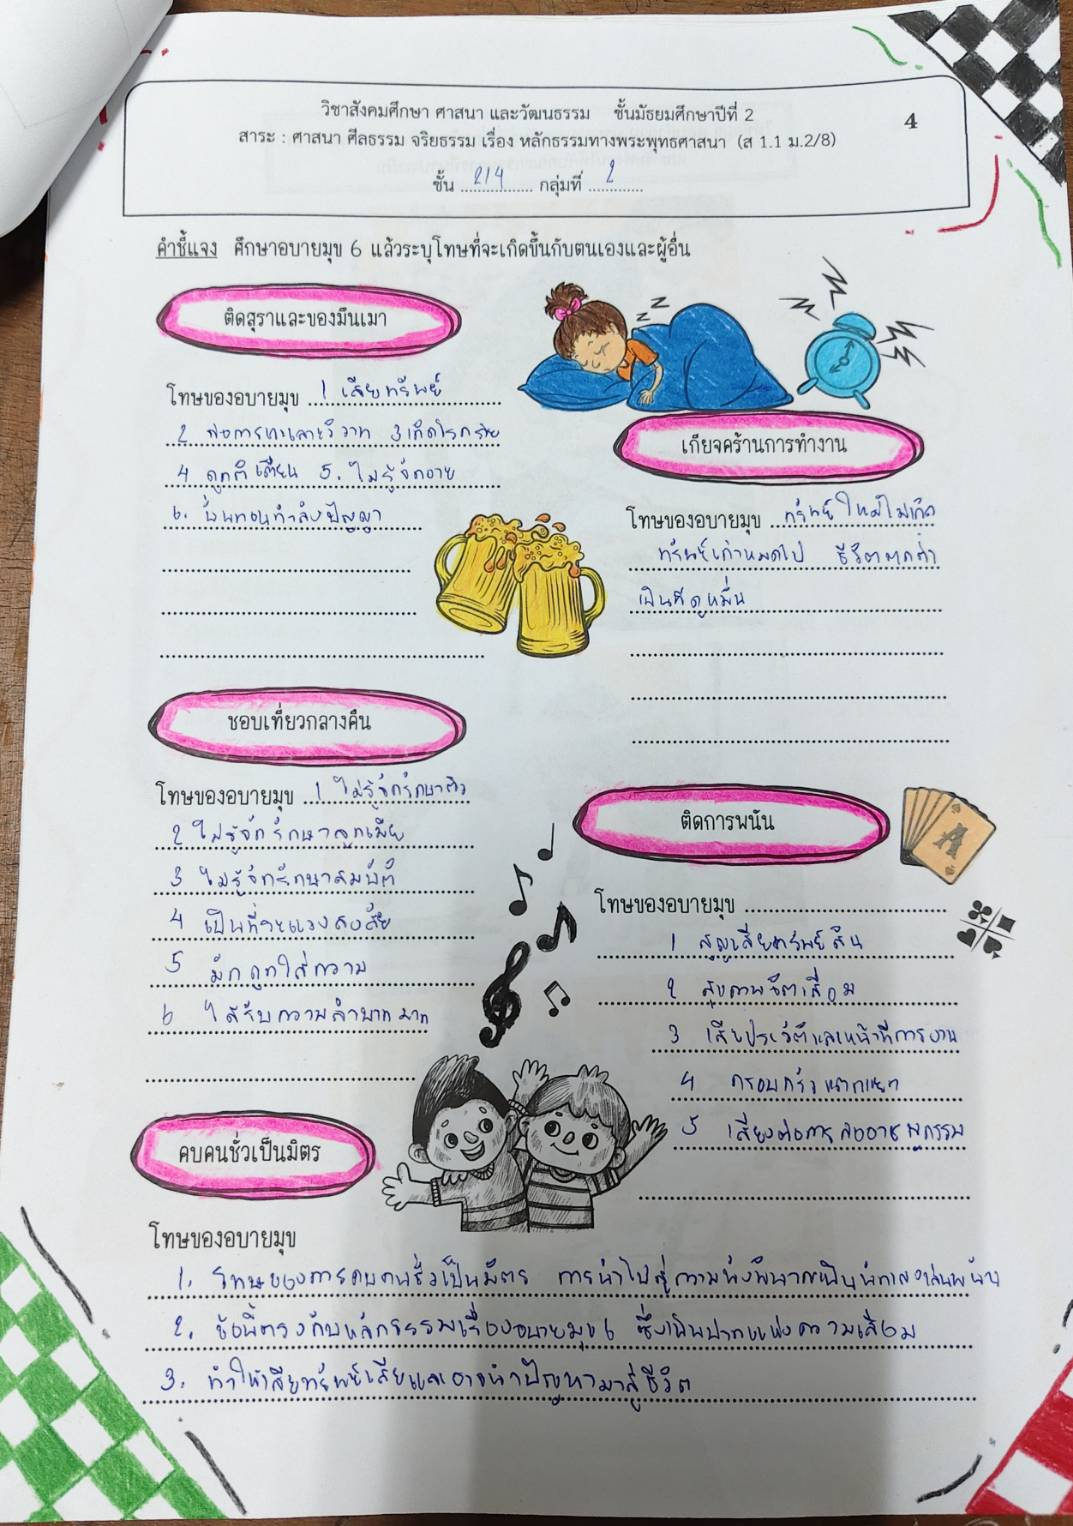 วิชาสังคมศึกษา ศาสนา และวัฒนธรรม ชั้นมัธยมศึกษาปีที่ 2
4
สาระ : ศาสนา ศีลธรรม จริยธรรม เรื่อง หลักธรรมทางพระพุทธศาสนา (ส 1.1 ม.2/8)
ชั้น 2/4 กลุ่มที่ 2
คำชี้แจง ศึกษาอบายมุข 6 แล้วระบุโทษที่จะเกิดขึ้นกับตนเองและผู้อื่น
ติดสุราและของมึนเมา
โทษของอบายมุข 1 เสียทรัพย์
2 ก่อการทะเลาะวิวาท 3 เกิดโรคร้าย
4 ถูกติเตียน 5. ไม่รู้จักอาย
6. บั่นทอนกำลังปัญญา
เกียจคร้านการทำงาน
โทษของอบายมุข ทรัพย์ใหม่ไม่เกิด
ทรัพย์เก่าหมดไป ชีวิตตกต่ำ
เป็นที่ดูหมิ่น
ชอบเที่ยวกลางคืน
โทษของอบายมุข 1 ไม่รู้จักรักษาตัว
2 ไม่รู้จักรักษาลูกเมีย
3 ไม่รู้จักรักษาสมบัติ
4 เป็นที่ระแวงสงสัย
5 มักถูกใส่ความ
6 ได้รับความลำบากมาก
ติดการพนัน
A
โทษของอบายมุข
1 สูญเสียทรัพย์สิน
2 สุขภาพจิตเสื่อม
3 เสียประวัติและหน้าที่การงาน
4 ครอบครัวแตกแยก
5 เสี่ยงต่อการก่ออาชญกรรม
คบคนชั่วเป็นมิตร
โทษของอบายมุข
1. โทษของการคบคนชั่วเป็นมิตร การนำไปสู่ความพังพินาศเป็นนักเลงเล่นพนัน
2. ข้อนี้ตรงกับหลักธรรมเรื่องอบายมุข 6 ซึ่งเป็นปากแห่งความเสื่อม
3. ทำให้เสียทรัพย์เสียและอาจนำปัญหามาสู่ชีวิต